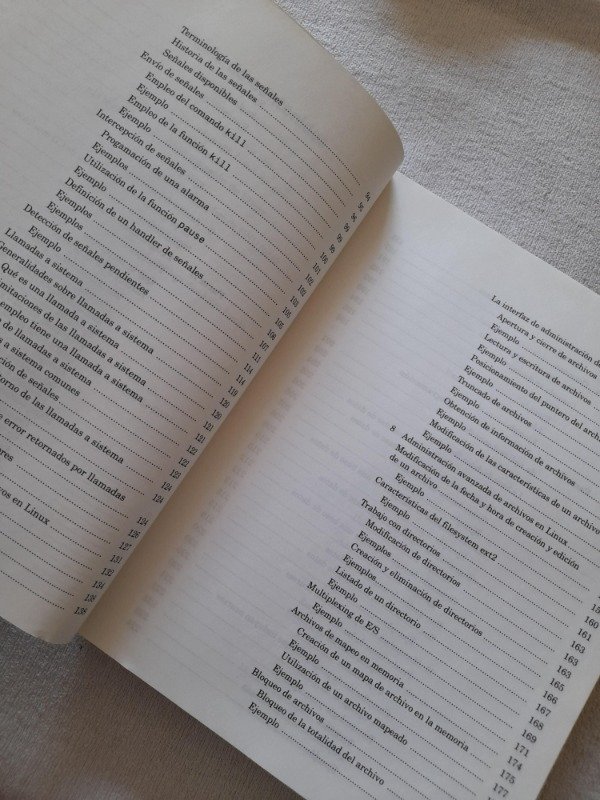 Terminología de las señales
Historia de las señales
Señales disponibles
Envío de señales
Empleo del comando kill
Ejemplo
Empleo de la función kill
Ejemplo
Intercepción de señales
Progamación de una alarma
Ejemplos
Utilización de la función pause
Ejemplo
Definición de un handler de señales
Ejemplos
Ejemplos
Detección de señales pendientes
Ejemplo
Llamadas a sistema
Generalidades sobre llamadas a sistema
Qué es una llamada a sistema
mitaciones de las llamadas a sistema
empleo tiene una llamada a sistema
de llamadas a sistema
a sistema comunes
ción de señales
torno de las llamadas a sistema
e error retornados por llamadas
res
os en Linux
95
96
98
99
99
101
102
102
105
106
107
111
114
114
119
120
121
121
122
124
124
124
126
127
131
132
134
135
La interfaz de administración de
Apertura y cierre de archivos
Ejemplo
Lectura y escritura de archivos
Ejemplo
Posicionamiento del puntero del archi
Ejemplo
Truncado de archivos
Ejemplo
Obtención de información de archivos
Ejemplo
Modificación de las características de un archivo
Ejemplo
8 Administración avanzada de archivos en Linux
Modificación de la fecha y hora de creación y edición
de un archivo
Ejemplo
Características del filesystem ext2
Ejemplo
Trabajo con directorios
Modificación de directorios
Ejemplos
Creación y eliminación de directorios
Ejemplos
Listado de un directorio
Ejemplo
Multiplexing de E/S
Ejemplo
Archivos de mapeo en memoria
Creación de un mapa de archivo en la memoria
Ejemplo
Utilización de un archivo mapeado
Ejemplo
Bloqueo de archivos
Bloqueo de la totalidad del archivo
Ejemplo
15
160
161
163
163
163
165
166
167
168
169
171
174
175
177